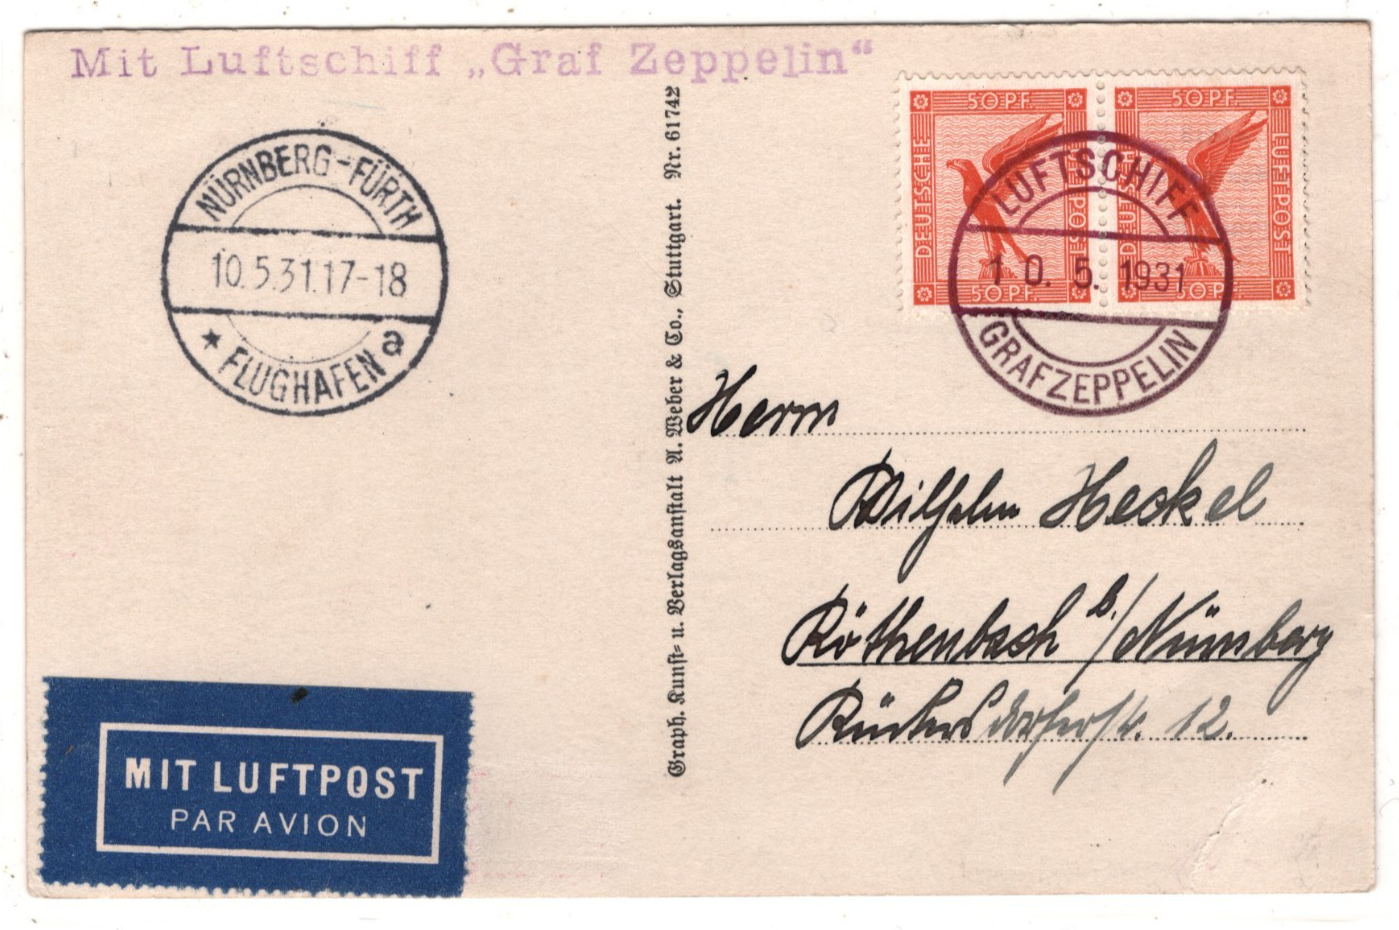 Mit Luftschiff „Graf Zeppelin“
NÜRNBERG-FÜRTH
10.5.31.17-18
* FLUGHAFEN a
50 PF.
DEUTSCHE
LUFTPOST
50 PF.
50 PF.
DEUTSCHE
LUFTPOST
50 PF.
LUFTSCHIFF
10. 5. 1931
GRAF ZEPPELIN
Graph. Kunst- u. Verlagsanstalt A. Weber & Co., Stuttgart. Nr. 61742
Herrn
Wilhelm Heckel
Röthenbach b./Nürnberg
Rückersdorferstr. 12.
MIT LUFTPOST
PAR AVION